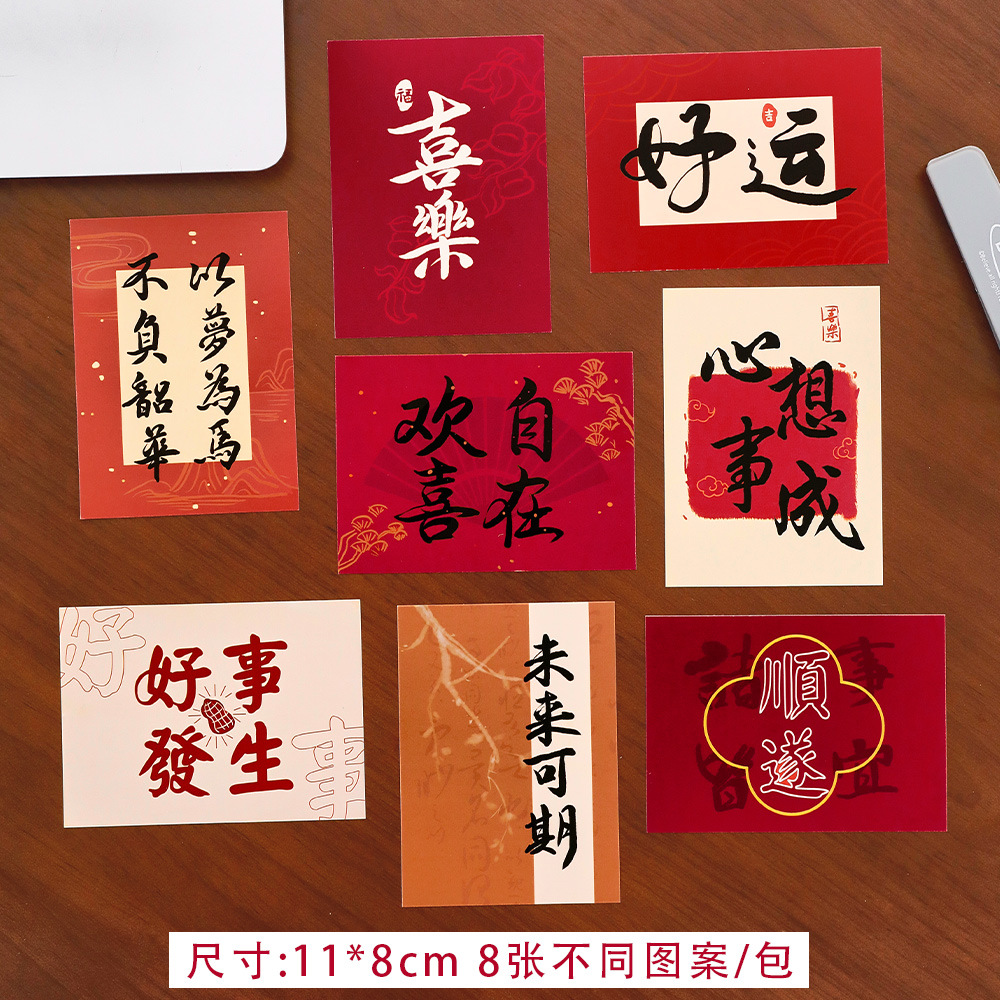 福
喜樂
好运
吉
以夢為馬
不負韶華
欢喜
自在
喜樂
心想
事成
好事
發生
好
事
未来可期
順遂
諸事
皆宜
尺寸:11*8cm 8张不同图案/包